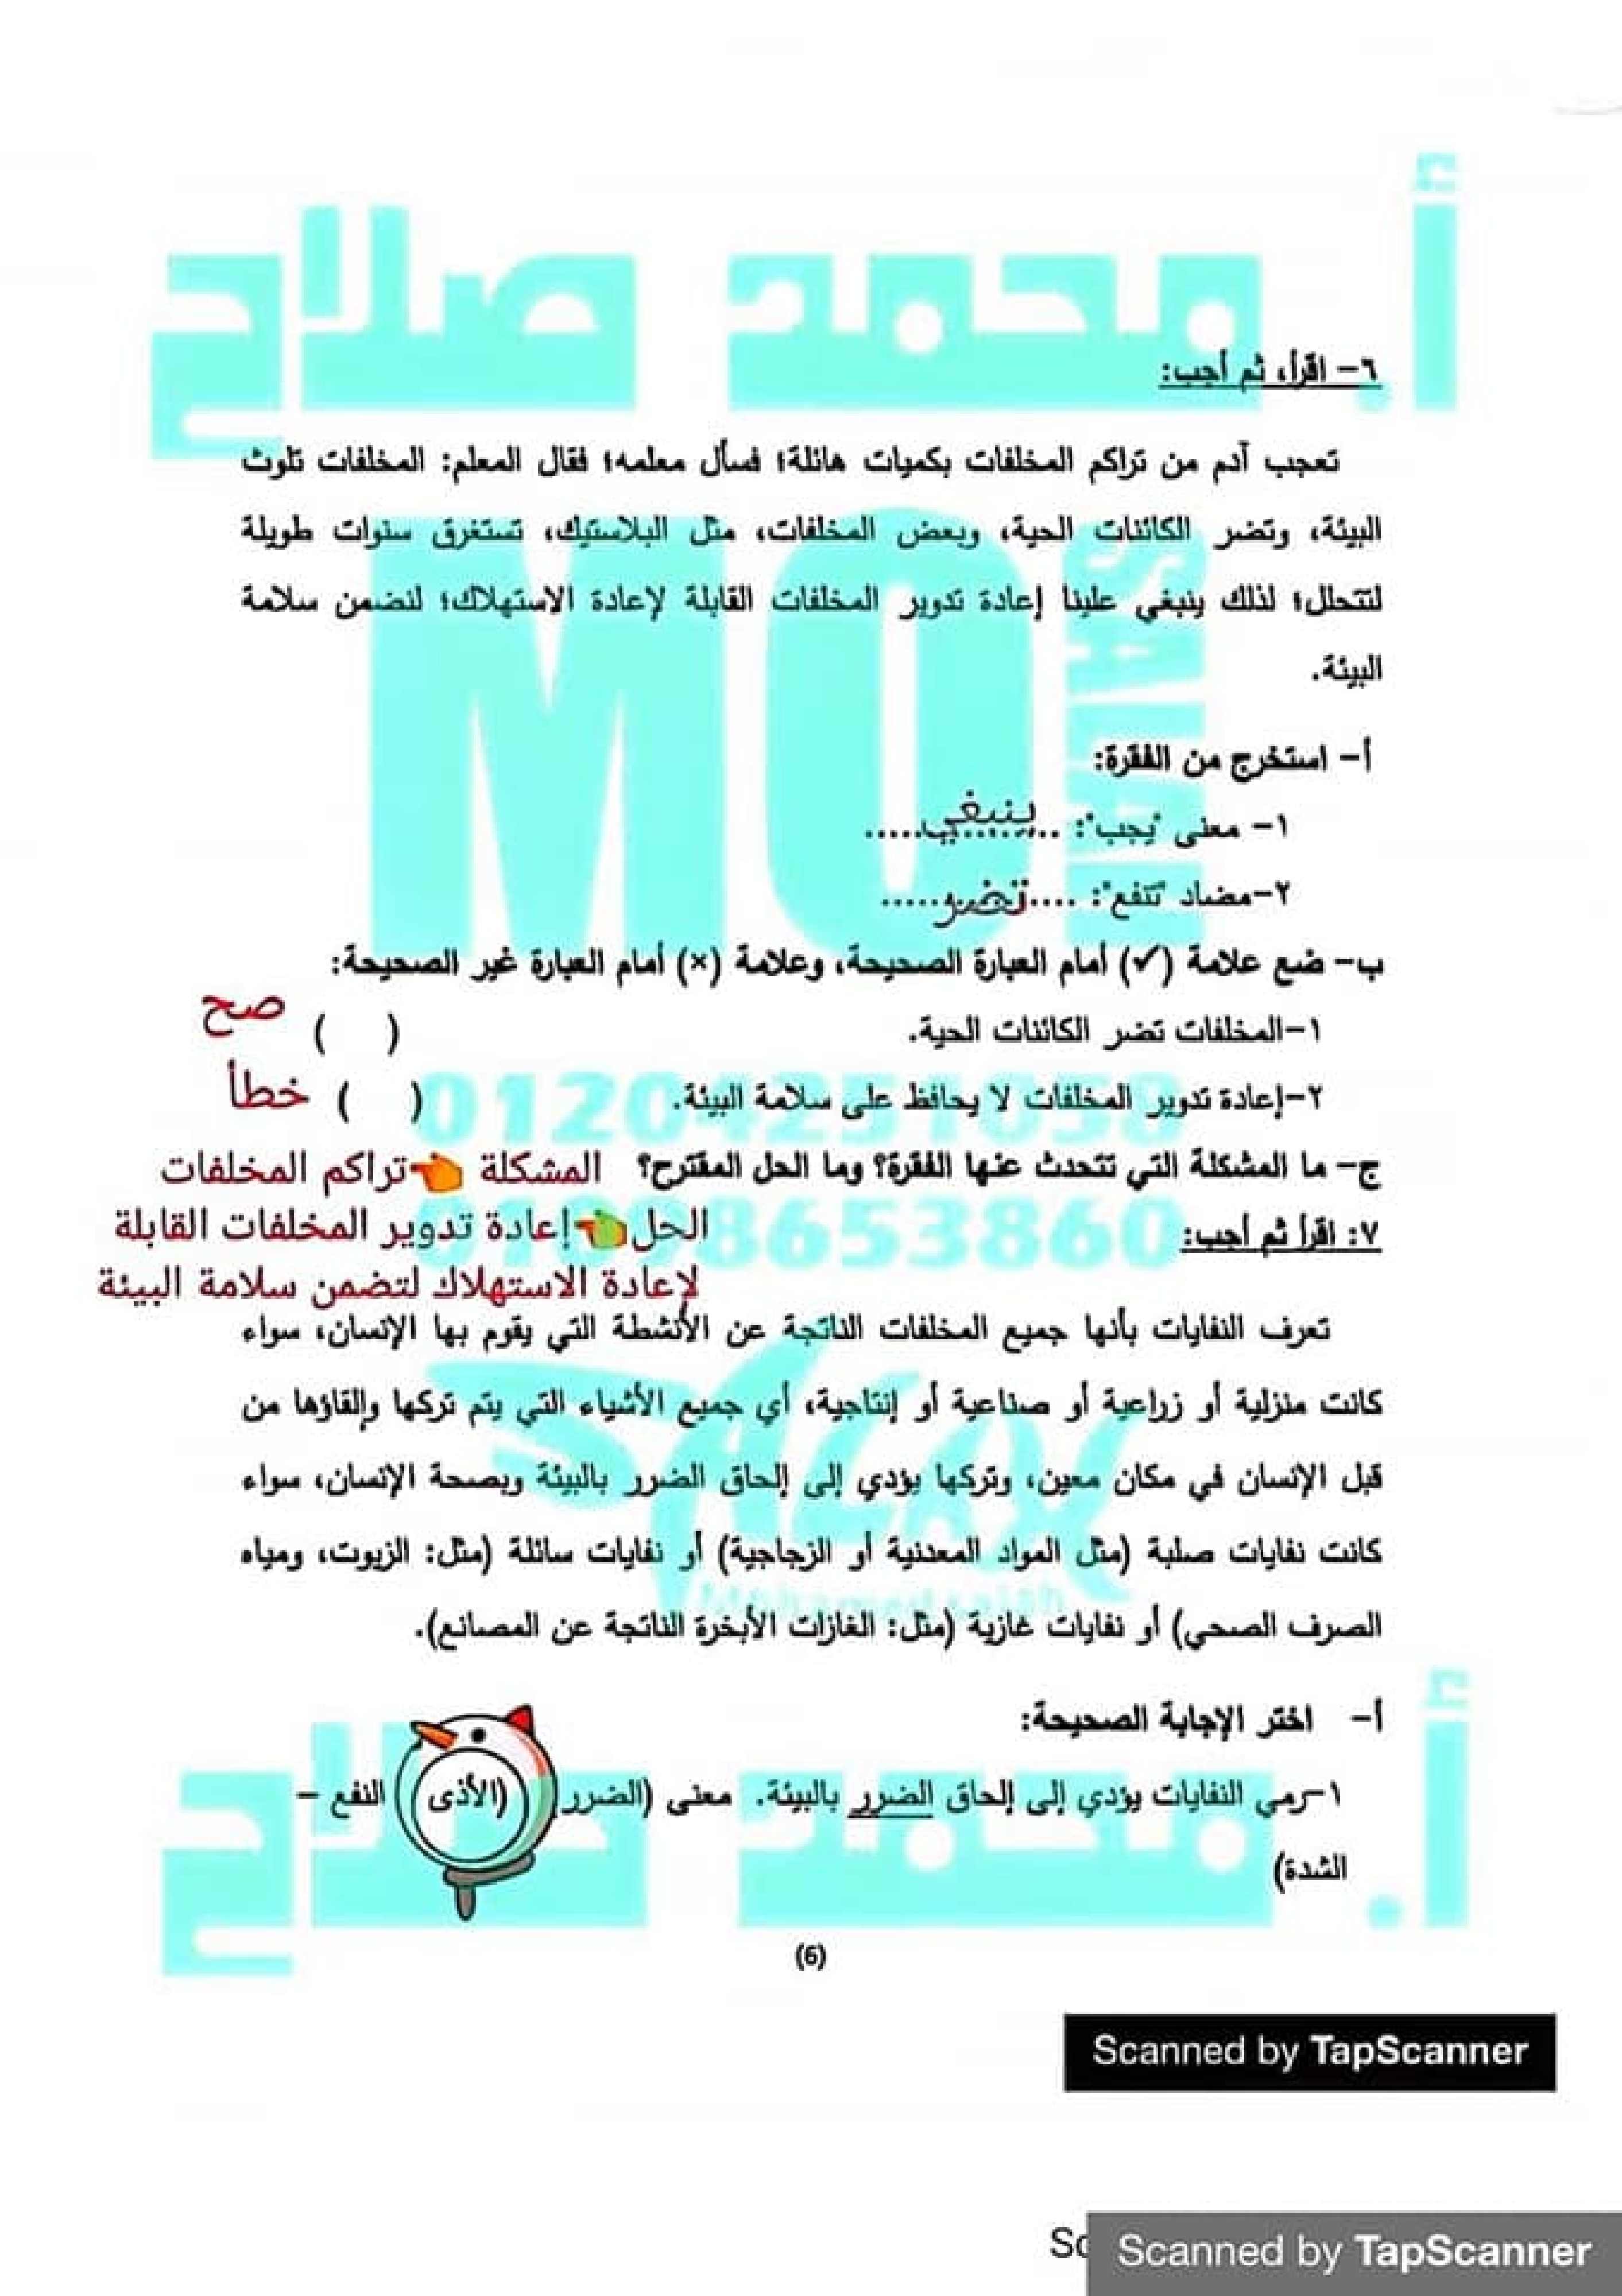 أ. محمد صلاح
٦- اقرأ، ثم أجب:
تعجب آدم من تراكم المخلفات بكميات هائلة؛ فسأل معلمه؛ فقال المعلم: المخلفات تلوث
البيئة، وتضر الكائنات الحية، وبعض المخلفات، مثل البلاستيك، تستغرق سنوات طويلة
لتتحلل؛ لذلك ينبغي علينا إعادة تدوير المخلفات القابلة لإعادة الاستهلاك؛ لنضمن سلامة
البيئة.
MO SALAH
أ- استخرج من الفقرة:
١- معنى "يجب": ينبغي
٢-مضاد "تنفع": تضر
ب- ضع علامة (✓) أمام العبارة الصحيحة، وعلامة (×) أمام العبارة غير الصحيحة:
١-المخلفات تضر الكائنات الحية. ( ) صح
٢-إعادة تدوير المخلفات لا يحافظ على سلامة البيئة. ( ) خطأ
ج- ما المشكلة التي تتحدث عنها الفقرة؟ وما الحل المقترح؟ المشكلة 👈تراكم المخلفات
الحل👈إعادة تدوير المخلفات القابلة
لإعادة الاستهلاك لتضمن سلامة البيئة
٧: اقرأ ثم أجب:
تعرف النفايات بأنها جميع المخلفات الناتجة عن الأنشطة التي يقوم بها الإنسان، سواء
كانت منزلية أو زراعية أو صناعية أو إنتاجية، أي جميع الأشياء التي يتم تركها وإلقاؤها من
قبل الإنسان في مكان معين، وتركها يؤدي إلى إلحاق الضرر بالبيئة وبصحة الإنسان، سواء
كانت نفايات صلبة (مثل المواد المعدنية أو الزجاجية) أو نفايات سائلة (مثل: الزيوت، ومياه
الصرف الصحي) أو نفايات غازية (مثل: الغازات الأبخرة الناتجة عن المصانع).
Salah
Mohamed salah
أ- اختر الإجابة الصحيحة:
١-رمي النفايات يؤدي إلى إلحاق الضرر بالبيئة. معنى (الضرر) (الأذى النفع –
الشدة)
أ. محمد صلاح
(6)
Scanned by TapScanner
Scanned by TapScanner